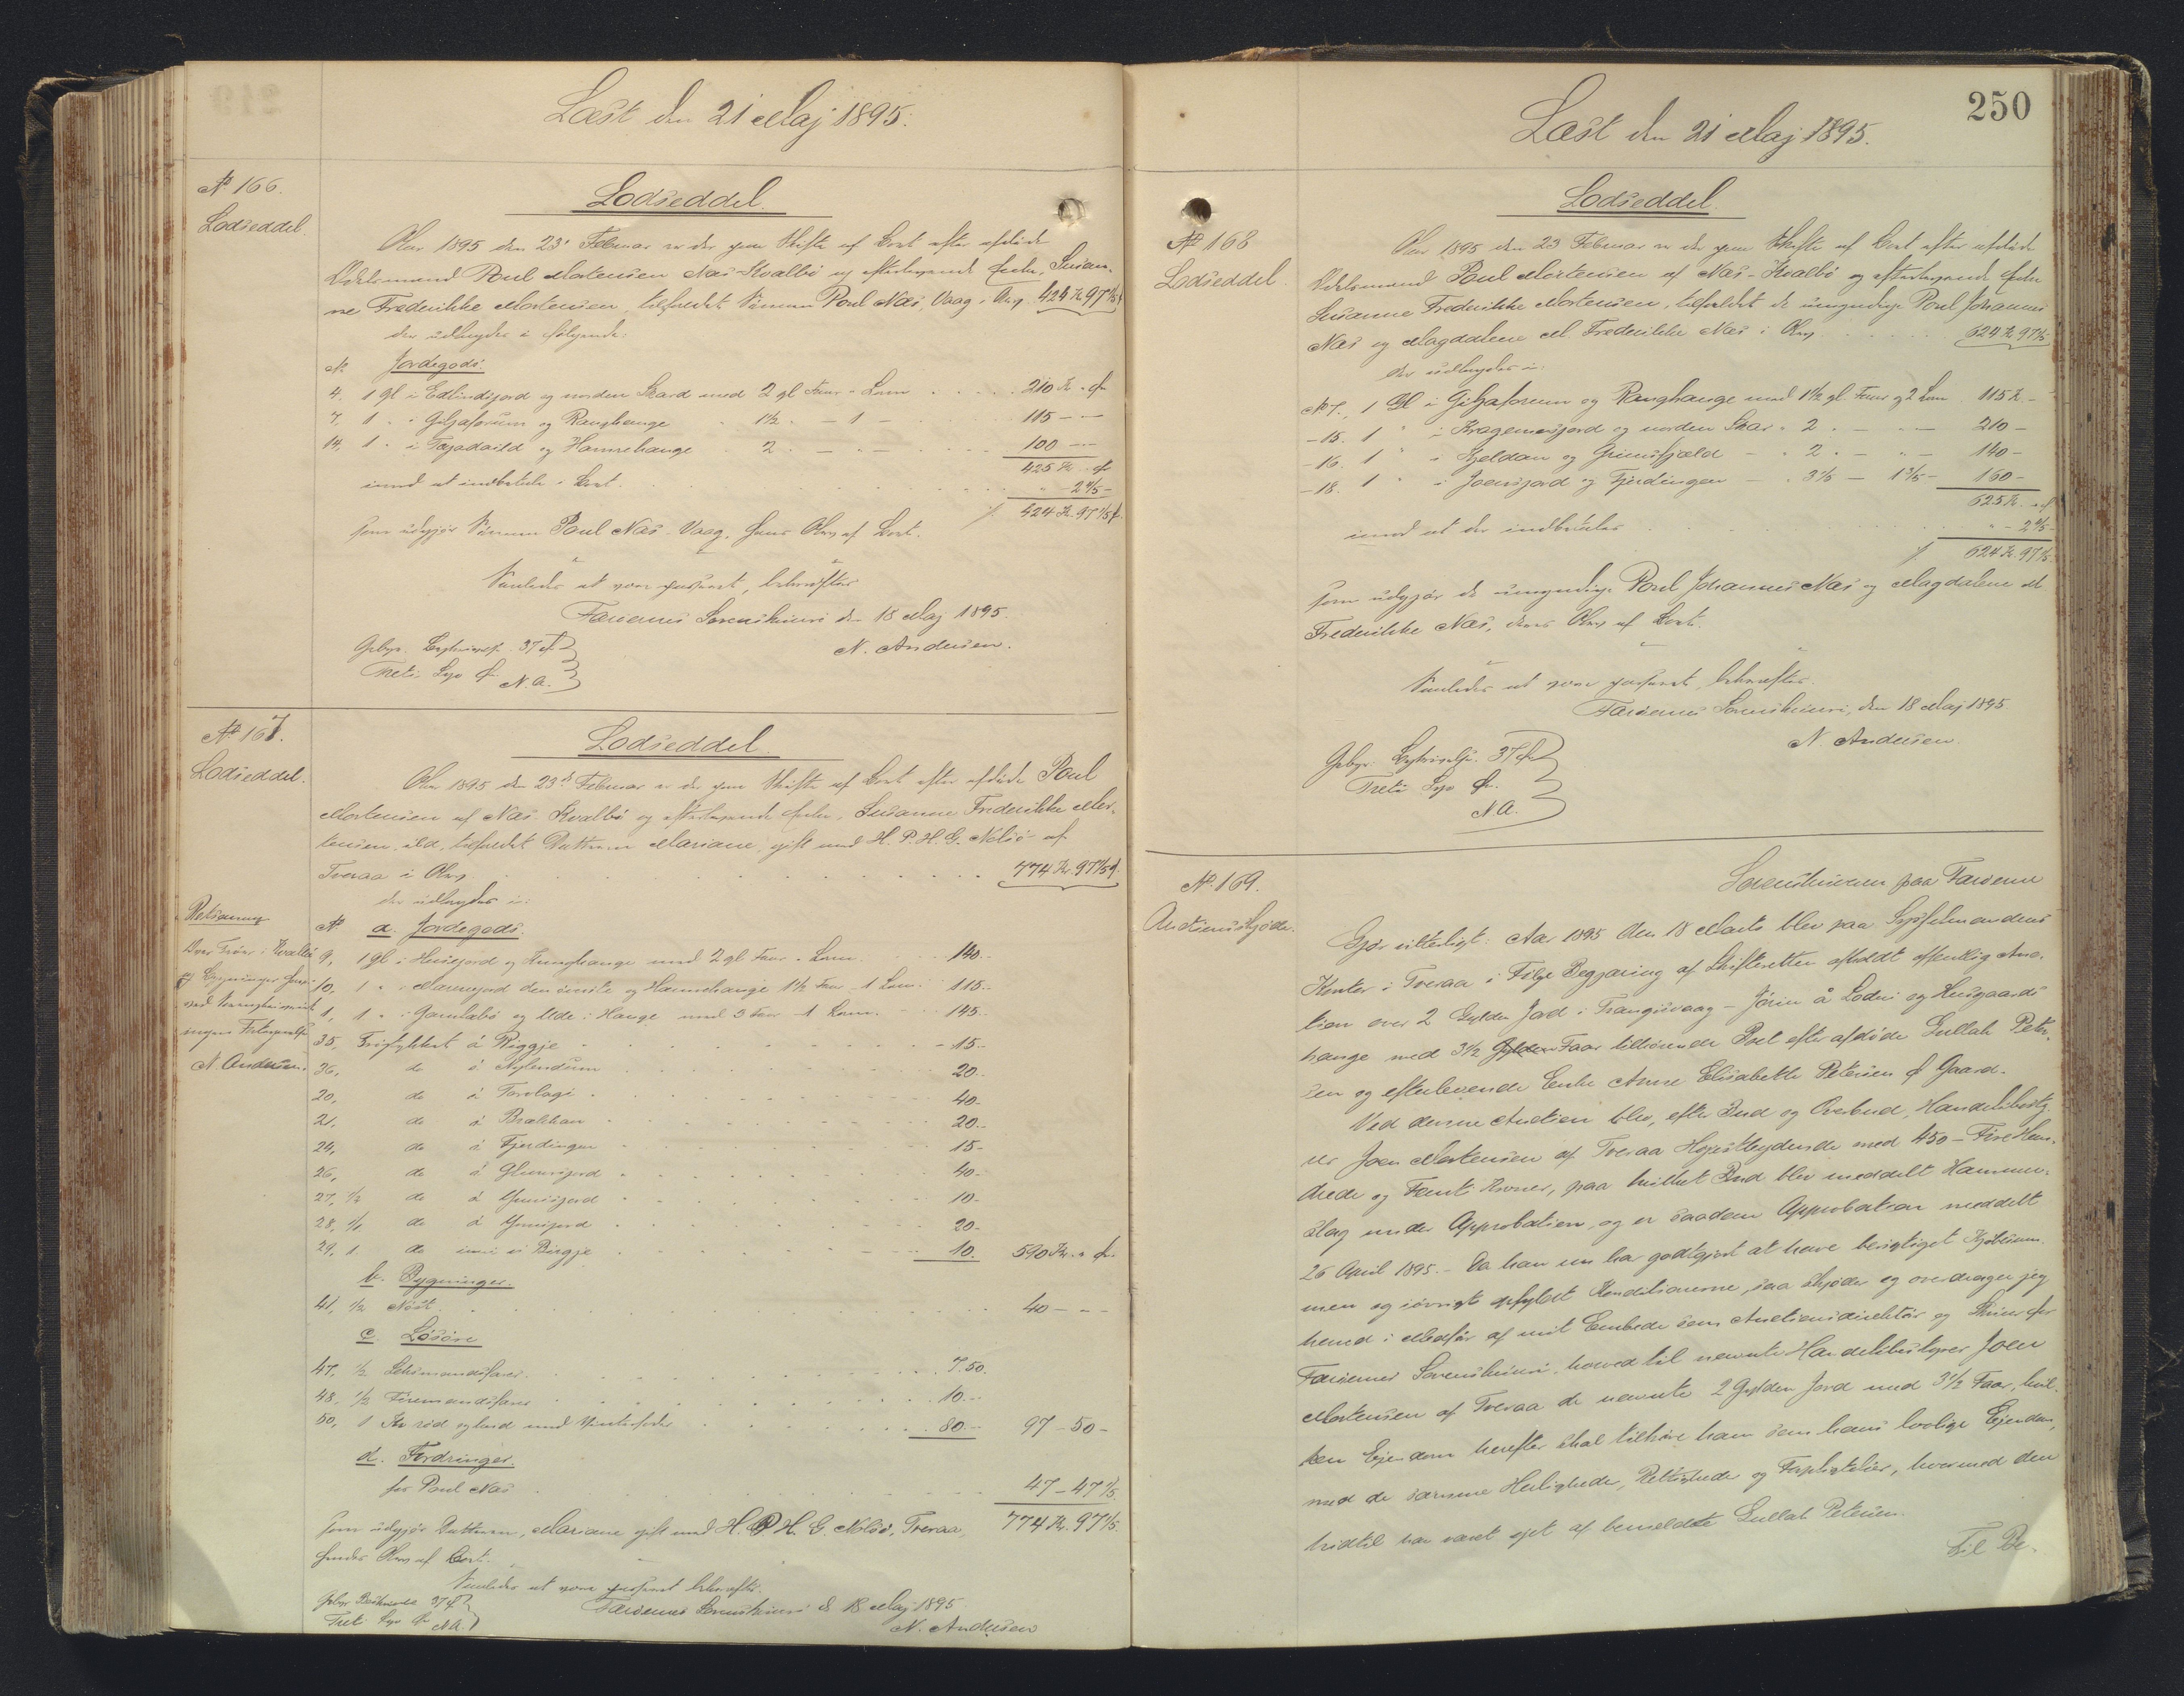 Læst den 21 Maj 1895.
No 166.
Lodseddel.
Lodseddel.
Aar 1895 den 23' Februar er der paa Skifte af Boet efter afdøde
Odelsmand Poul Mortensen Næs-Kvalbø og efterlevende Enke, Susan-
ne Frederikke Mortensen, tilfaldet Sønnen Poul Næs, Vaag i Arv 424 Kr 97 1/5
der udlægges i følgende:
No Jordegods:
4. 1 gl i Edlindsjord og norden Skard med 2 gl Faar - Lam 210 Kr. - Ø
7. 1 " " Giljaforum og Ranghange 1½ - 1 - 115 - -
14. 1 " i Torgadaild og Hamrehange 2 - 100 - -
425 Kr. - Ø
imod at indbetale i Boet. " - 2 4/5 -
424 Kr. 97 1/5
som udgjør Sønnen Poul Næs. Vaag, hans Arv af Boet.
Saaledes at være passeret, bekræfter
Færøernes Sorenskriveri den 18 Maj 1895.
N. Andersen.
Gebyr. Beskrivelse 37 Ø
Treti Syv Ø N.A.
No 167.
Lodseddel.
Lodseddel.
Aar 1895 den 23d Februar er der paa Skifte af Boet efter afdøde Poul
Mortensen af Næs. Kvalbø og efterlevende Enke, Susanne Frederikke Mor-
tensen, tilfaldet Datteren Mariane, gift med H. P. H. G. Nolsø af
Tveraa i Arv 774 Kr. 97 1/5
der udlægges i:
N. Andersen.
No a. Jordegods.
9, 1 gl i Husejord og Kunghange med 2 gl Faar - Lam 140..
10, 1 " " Marnejord den øverste og Hamrehange 1½ Faar - 1 Lam 115..
1, 1 " i Gamlabø og Ude i Hauge med 3 Faar 1 Lam. 145..
35, á Riggje 15..
36, do á Nylendum 20..
20, do á Torvlagi 40-
21, do á Brekkan 20..
24, do á Fjerdingen 15-
26, do á 40-
27, ½ do á 10-
28, do á 20-
29, 1. do inni á Birgje 10. 590 Kr. " Ø.
b. Bygninger.
41, ½ Nøst. 40 - - -
c. Løsøre
47, ½ Seksmandsfarer. 7.50.
48, ½ Firemandsfarer 10..
50, 1 Ko rød og hvid med Vinterfoder 80.. 97 - 50 -
d. Fordringer.
hos Poul Næs 47 - 47 1/5.
som udgjør Datteren, Mariane gift med H. P. H. G. Nolsø, Tveraa, 774 Kr. 97 1/5.
hendes Arv af Boet.
Saaledes at være passeret bekræfter.
Færøernes Sorenskriveri d 18 Maj 1895.
N. Andersen
Gebyr Beskrivelse 37 Ø
Treti Syv Ø N.A.
250
Læst den 21 Maj 1895.
No 168
Lodseddel.
Lodseddel.
Aar 1895 den 23 Februar er der paa Skifte af Boet efter afdøde
Odelsmand Poul Mortensen af Næs-Kvalbø og efterlevende Enke
Susanne Frederikke Mortensen, tilfaldet de umyndige Poul Johannes
Næs og Magdalene M. Frederikke Næs i Arv 624 Kr 97 1/5
der udlægges i:
No 7., 1 Gl i Giljaforum og Ranghange med 1½ gl. Faar og 2 Lam 115 Kr. -
- 15. 1 " i Kragenesjord og norden Skar " 2. - " - 210 -
- 16. 1 " i Kjeldan og Grimsfjæld - " 2. - " - 140 -
- 18. 1 " i Joensjord og Fjerdingen - " 3 1/5 - 1 3/5 - 160 -
625 Kr. " Ø
imod at der indbetales " - 2 4/5 -
624 Kr. 97 1/5
som udgjør de umyndige Poul Johannes Næs og Magdalene M
Frederikke Næs, deres Arv af Boet.
Saaledes at være passeret, bekræfter.
Færøernes Sorenskriveri, den 18 Maj 1895
N. Andersen
Gebyr. Beskrivelse. 37 Ø
Treti Syv Ø.
N.A.
No. 169.
Auctionsskjøde.
Sorenskriveren paa Færøerne
Gjør vitterligt: Aar 1895 den 18 Marts blev paa Sysselmandens
Kontor i Tveraa i Følge Begjæring af Skifteretten afholdt offentlig Auc-
tion over 2 Gylden Jord i Trangisvaag - Jørin å Lodni og Husgaards
hauge med 3½ Gylden Faar tilhørende Boet efter afdøde Gullak Peter-
sen og efterlevende Enke Anne Elisabeth Petersen f Gaard.
Ved denne Auction blev, efter Bud og Overbud, Handelsbesty-
rer Joen Mortensen af Tveraa Højstbydende med 450 - Fire Hun-
drede og Femti Kroner, paa hvilket Bud blev meddelt Hammer-
slag under Approbation, og er saadan Approbation meddelt
26 April 1895. - Da han nu har godtgjort at have berigtiget Kjøbesum-
men og iøvrigt opfyldt Konditionerne, saa skjøder og overdrager jeg
herved i Medfør af mit Embede som Auctionsdirektør og Skriver for
Færøernes Sorenskriveri, herved til nævnte Handelsbestyrer Joen
Mortensen af Tveraa de nævnte 2 Gylden Jord med 3½ Faar, hvil-
ken Ejendom herefter skal tilhøre ham som hans lovlige Ejendom,
med de samme Herligheder, Rettigheder og Forpligtelser, hvormed den
hidtil har været ejet af bemeldte Gullak Petersen.
Til Be-